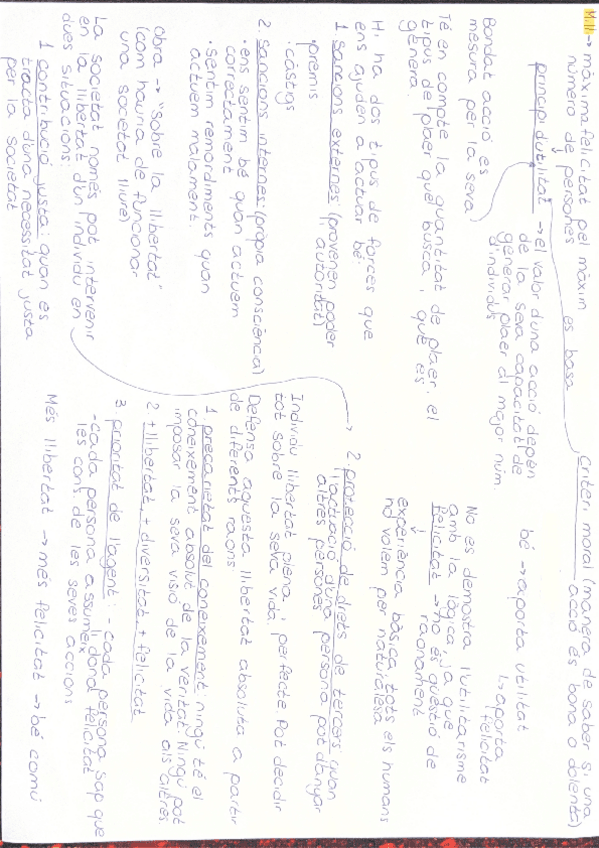 Mill → màxima felicitat pel màxim
número de persones
es basa
criteri moral (manera de saber si una
acció és bona o dolenta)
principi d'utilitat → el valor d'una acció depèn
de la seva capacitat de
generar plaer al major núm.
d'individus
bé → aporta utilitat
↳ aporta
felicitat
Bondat acció és
mesura per la seva
Té en compte la quantitat de plaer, el
tipus de plaer que busca i què es
genera.
No es demostra l'utilitarisme
amb la lògica ja que
felicitat → no és qüestió de
raonament
↓
experiència bàsica tots els humans
no volem per naturalesa
Hi ha dos tipus de forces que
ens ajuden a actuar bé:
1 sancions externes: (provenen poder
i autoritat)
·premis
·càstigs
2. sancions internes: (pròpia consciència)
·ens sentim bé quan actuem
correctament
·sentim remordiments quan
actuem malament.
obra → "sobre la llibertat"
(com hauria de funcionar
una societat lliure)
La societat només pot intervenir
en la llibertat d'un individu en
dues situacions:
1 contribució justa: quan es
tracta d'una necessitat justa
per la societat
→ 2 protecció de drets de tercers: quan
l'actuació d'una persona pot danyar
altres persones
Individu llibertat plena i perfecte. Pot decidir
tot sobre la seva vida.
Defensa aquesta llibertat absoluta a partir
de diferents raons
1. precarietat del coneixement: ningú té el
coneixement absolut de la veritat. Ningú pot
imposar la seva visió de la vida als altres
2. + llibertat, + diversitat, + felicitat
3. prioritat de l'agent: - cada persona sap que
li dona felicitat
- cada persona assumeix
les cons. de les seves accions
Més llibertat → més felicitat → bé comú